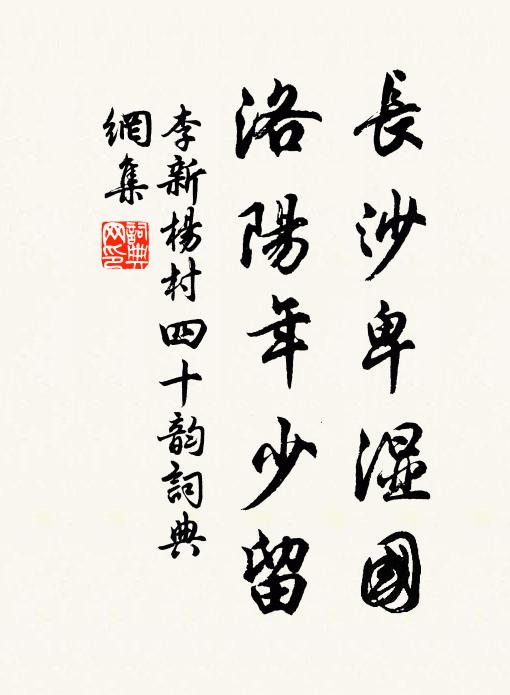 長沙卑濕國
洛陽年少留
李新楊村四十韵詞典
網集
詞典
网印